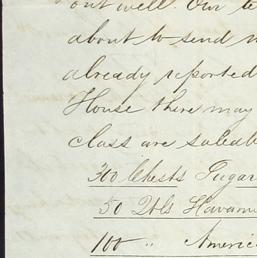 out well. Our te
about to send
already reported
House there may
class are saleab
300 Chests Sugar
50 Qtls Havanna
100 " Americ